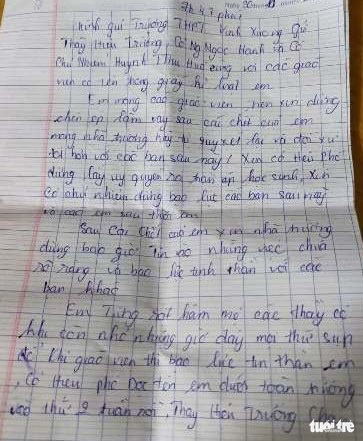 7h 47 phút
Kính gửi Trường THPT Vĩnh Xương Gửi
Thầy Hiệu Trưởng, Cô Ng Ngọc Hạnh và Cô
Chủ Nhiệm Huỳnh Thị Thu Huệ cùng với các giáo
viên có tên trong giấy kỉ luật em
Em mong các giáo viên trên xin đừng
chèn ép lắm nay sau cái chết của em
mong nhà trường hãy tự quyết lại và đối xử
tốt hơn với các bạn sau này! Xin cô Hiệu Phó
đừng lấy uy quyền ra chèn ép học sinh, Xin
Cô chủ nhiệm đừng bạo lực các bạn sau này
và các em sau thêm nữa
Sau Cái Chết của em xin nhà trường
đừng bao giờ tin vào những việc chưa
rõ ràng và bạo lực tinh thần với các
bạn khác
Em Từng rất hâm mộ các thầy cô
khi còn nhỏ nhưng giờ đây mọi thứ sụp
đổ Khi giáo viên thì bạo lực tin thần em
, Cô Hiệu phó Đọc tên em dưới toàn trường
vào thứ 2 tuần rồi, Thầy Hiệu Trưởng
tuổi trẻ